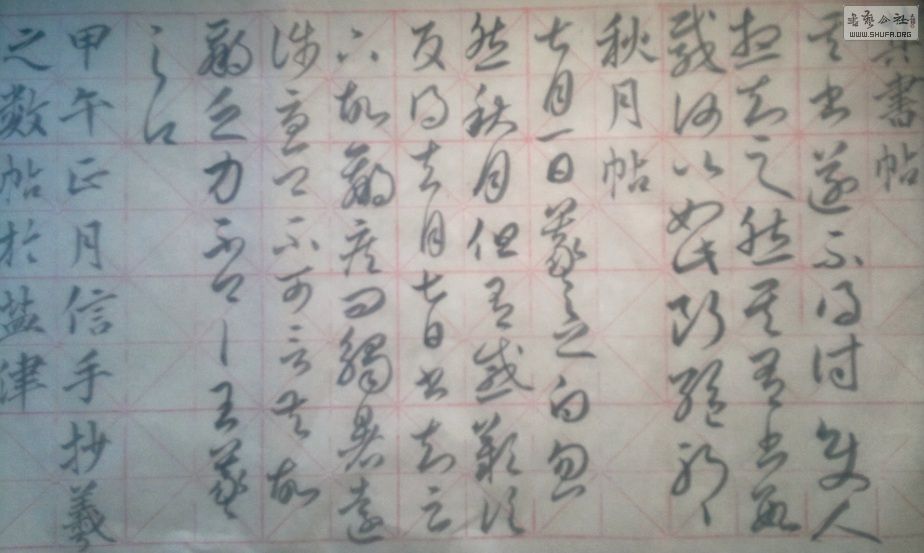 其書帖
書遂不得付使人
想知之然其
何以如此斷絕
秋月帖
七月一日羲之白忽
然秋月但有感歎信
反得去月七日書知足
下故羸疾問觸暑遠
涉憂卿不可言吾故
羸乏力不具王羲
之白
甲午正月信手抄羲
之數帖於津
書藝公社
WWW.SHUFA.ORG